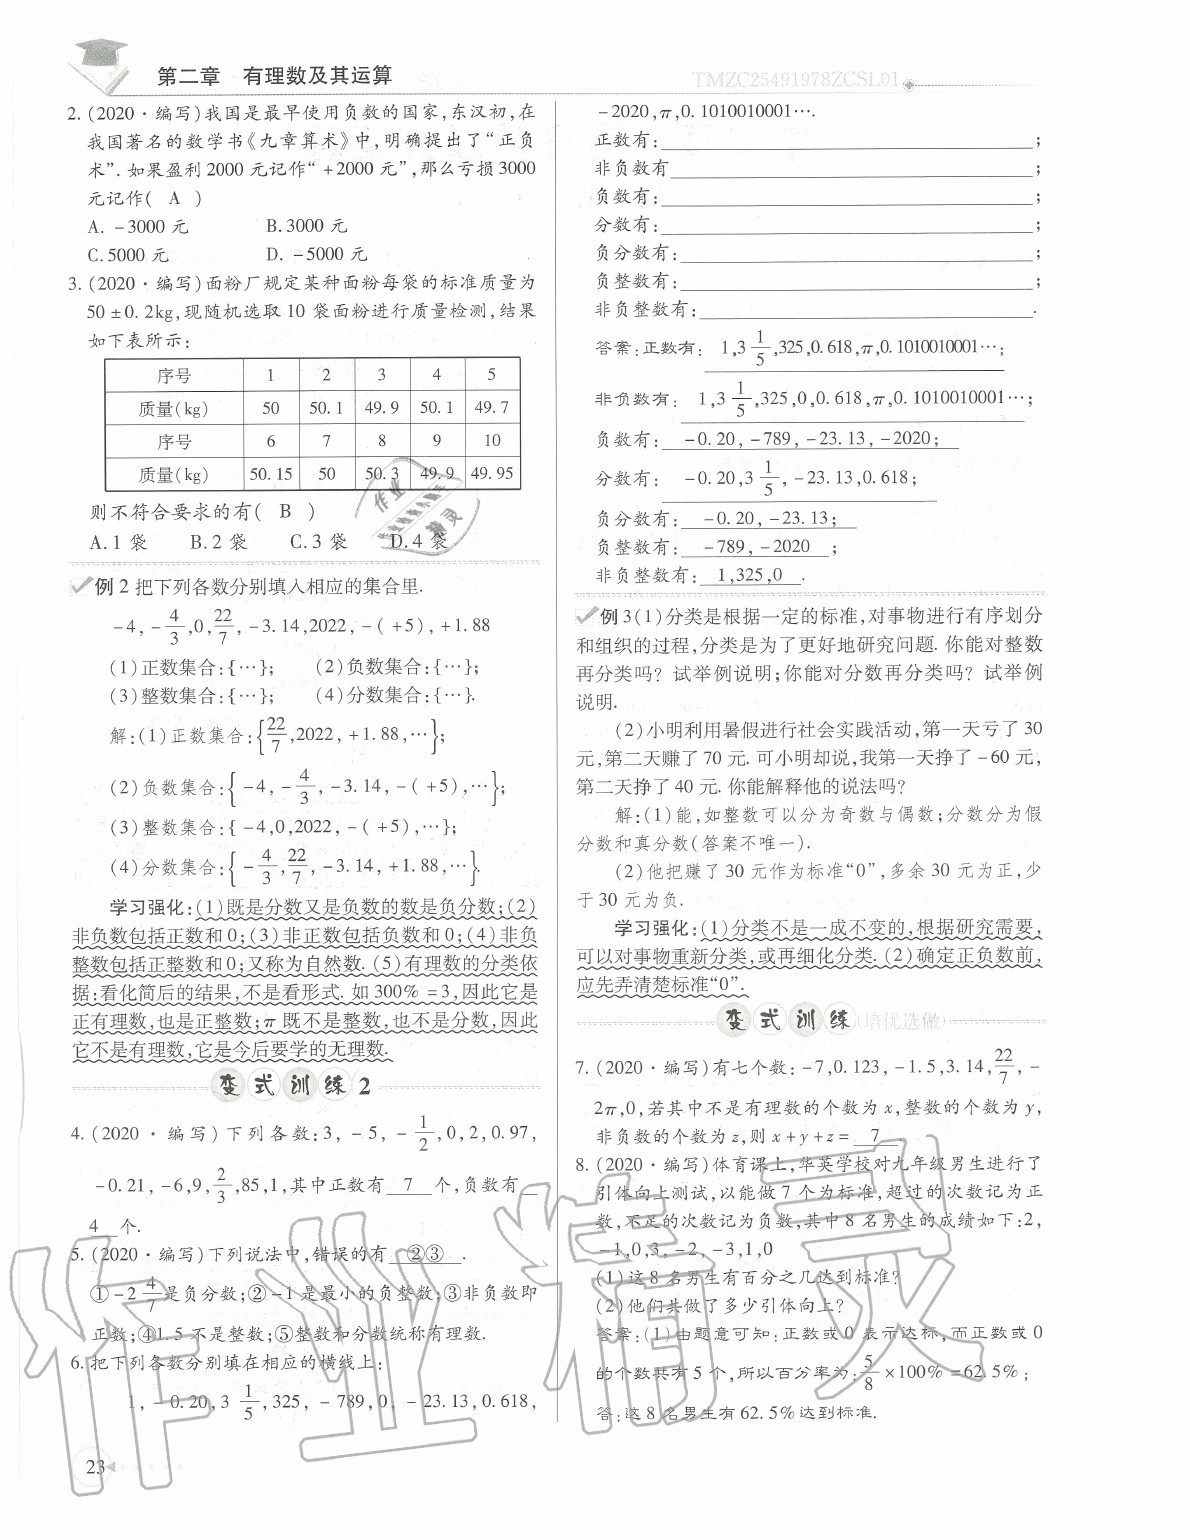 第二章 有理数及其运算
TMZC25491978ZCSL01
2. (2020·编写)我国是最早使用负数的国家,东汉初,在
我国著名的数学书《九章算术》中,明确提出了“正负
术”. 如果盈利2000元记作“+2000元”,那么亏损3000
元记作( A )
A. -3000元 B. 3000元
C. 5000元 D. -5000元
3. (2020·编写)面粉厂规定某种面粉每袋的标准质量为
50±0.2kg,现随机选取10袋面粉进行质量检测,结果
如下表所示:
序号 1 2 3 4 5
质量(kg) 50 50.1 49.9 50.1 49.7
序号 6 7 8 9 10
质量(kg) 50.15 50 50.3 49.9 49.95
则不符合要求的有( B )
A. 1袋 B. 2袋 C. 3袋 D. 4袋
例2 把下列各数分别填入相应的集合里.
-4, -4/3, 0, 22/7, -3.14, 2022, -(+5), +1.88
(1)正数集合:{…}; (2)负数集合:{…};
(3)整数集合:{…}; (4)分数集合:{…}.
解:(1)正数集合:{22/7, 2022, +1.88, …};
(2)负数集合:{-4, -4/3, -3.14, -(+5), …};
(3)整数集合:{-4, 0, 2022, -(+5), …};
(4)分数集合:{-4/3, 22/7, -3.14, +1.88, …}.
学习强化:(1)既是分数又是负数的数是负分数;(2)
非负数包括正数和0;(3)非正数包括负数和0;(4)非负
整数包括正整数和0;又称为自然数. (5)有理数的分类依
据:看化简后的结果,不是看形式. 如300%=3,因此它是
正有理数,也是正整数;π既不是整数,也不是分数,因此
它不是有理数,它是今后要学的无理数.
变式训练2
4. (2020·编写)下列各数:3, -5, -1/2, 0, 2, 0.97,
-0.21, -6, 9, 2/3, 85, 1,其中正数有 7 个,负数有
4 个.
5. (2020·编写)下列说法中,错误的有 ②③ .
①-2 4/7是负分数;②-1是最小的负整数;③非负数即
正数;④1.5不是整数;⑤整数和分数统称有理数.
6. 把下列各数分别填在相应的横线上:
1, -0.20, 3 1/5, 325, -789, 0, -23.13, 0.618,
23
-2020, π, 0.1010010001….
正数有: ;
非负数有 ;
负数有: ;
分数有: ;
负分数有: ;
负整数有: ;
非负整数有: .
答案:正数有: 1, 3 1/5, 325, 0.618, π, 0.1010010001…;
非负数有: 1, 3 1/5, 325, 0, 0.618, π, 0.1010010001…;
负数有: -0.20, -789, -23.13, -2020;
分数有: -0.20, 3 1/5, -23.13, 0.618;
负分数有: -0.20, -23.13;
负整数有: -789, -2020 ;
非负整数有: 1, 325, 0 .
例3 (1)分类是根据一定的标准,对事物进行有序划分
和组织的过程,分类是为了更好地研究问题. 你能对整数
再分类吗? 试举例说明;你能对分数再分类吗? 试举例
说明.
(2)小明利用暑假进行社会实践活动,第一天亏了30
元,第二天赚了70元. 可小明却说,我第一天挣了-60元,
第二天挣了40元. 你能解释他的说法吗?
解:(1)能,如整数可以分为奇数与偶数;分数分为假
分数和真分数(答案不唯一).
(2)他把赚了30元作为标准“0”,多余30元为正,少
于30元为负.
学习强化:(1)分类不是一成不变的,根据研究需要,
可以对事物重新分类,或再细化分类. (2)确定正负数前,
应先弄清楚标准“0”.
变式训练(培优选做)
7. (2020·编写)有七个数: -7, 0.123, -1.5, 3.14, 22/7, -
2π, 0,若其中不是有理数的个数为x,整数的个数为y,
非负数的个数为z,则x+y+z= 7 .
8. (2020·编写)体育课上,华英学校对九年级男生进行了
引体向上测试,以能做7个为标准,超过的次数记为正
数,不足的次数记为负数,其中8名男生的成绩如下:2,
-1, 0, 3, -2, -3, 1, 0
(1)这8名男生有百分之几达到标准?
(2)他们共做了多少引体向上?
答案:(1)由题意可知:正数或0表示达标,而正数或0
的个数共有5个,所以百分率为:5/8×100%=62.5%;
答:这8名男生有62.5%达到标准.
作业精灵